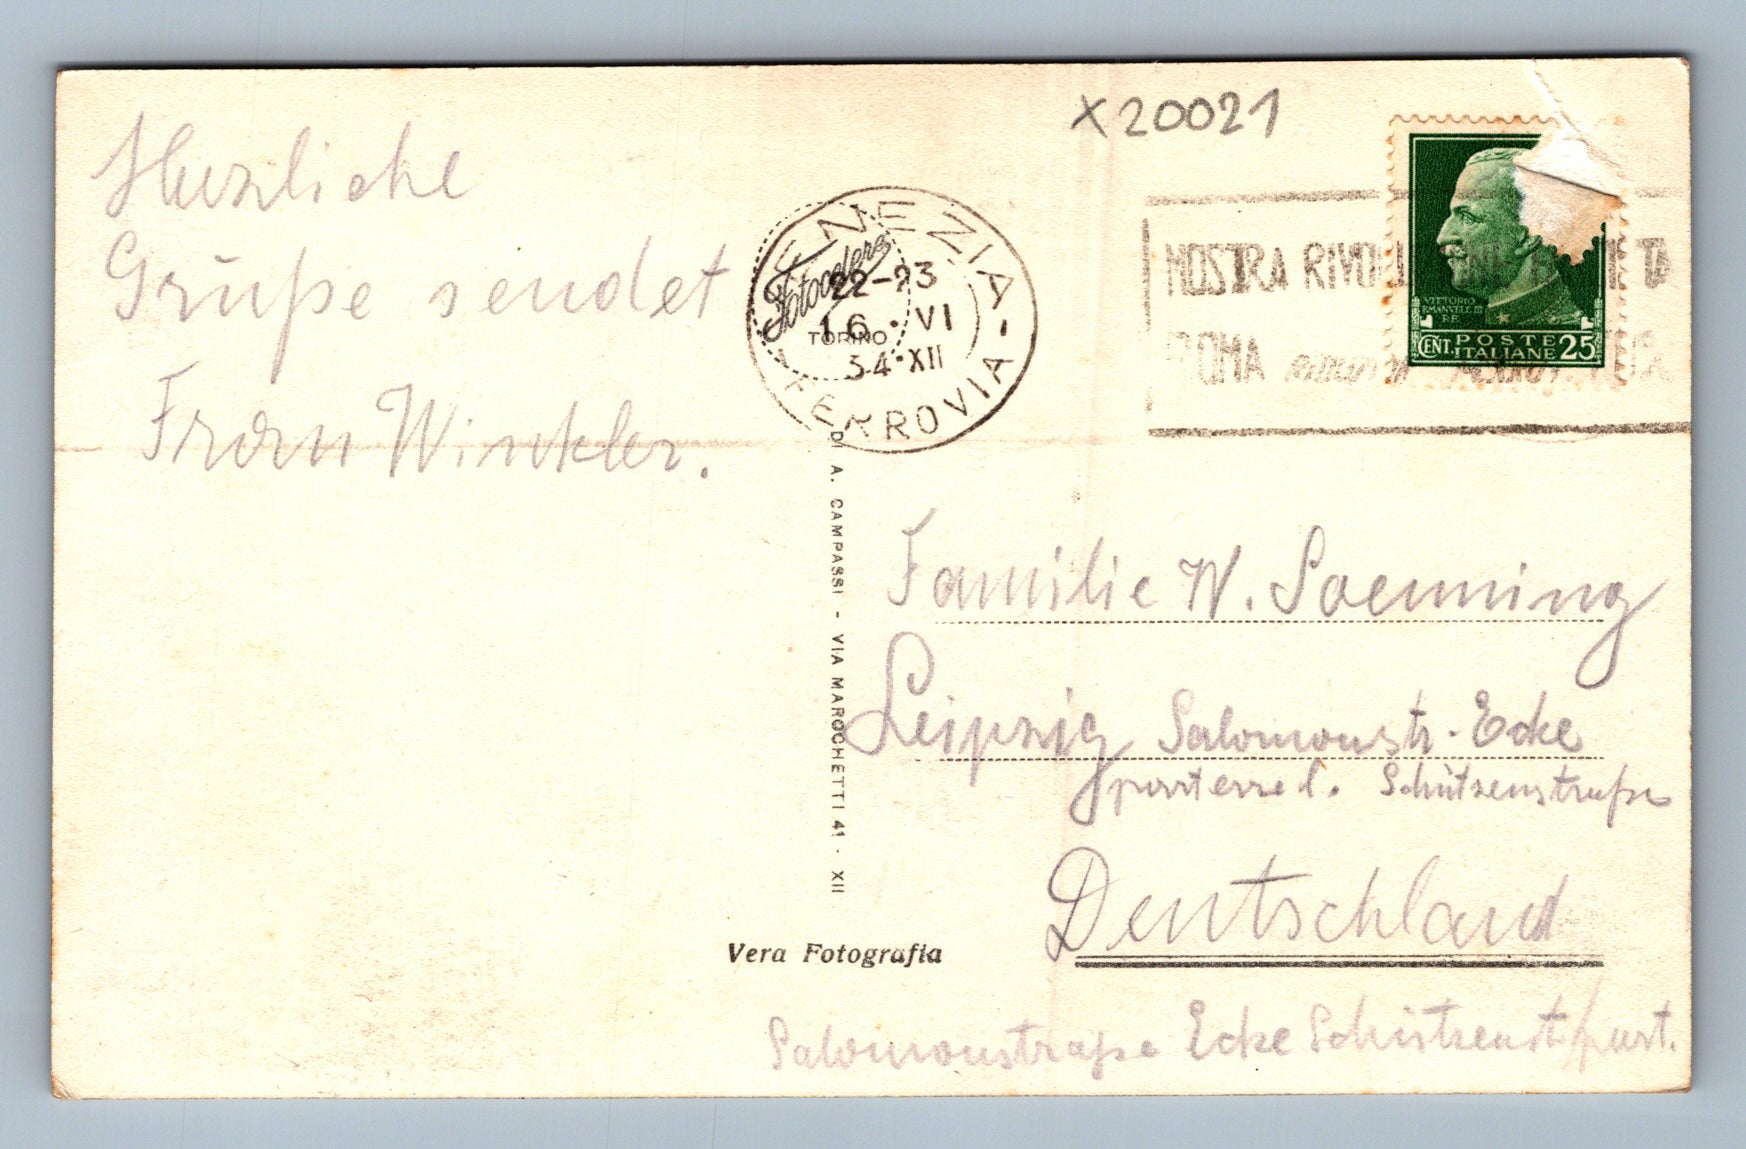 X20021
Herzliche
Grüße sendet
Fran Winkler.
VENEZIA
FERROVIA
22-23
16 · VI
34 · XII
Fotocelere
TORINO
MOSTRA
ROMA
VITTORIO
EMANUELE III
R.E.
POSTE
CENT. ITALIANE 25
DI A. CAMPASSI - VIA MAROCHETTI 41 - XII
Familie W. Saenning
Leipzig Salomonstr. Ecke
parterre l. Schützenstraße
Deutschland
Vera Fotografia
Salomonstraße Ecke Schützenst/part.